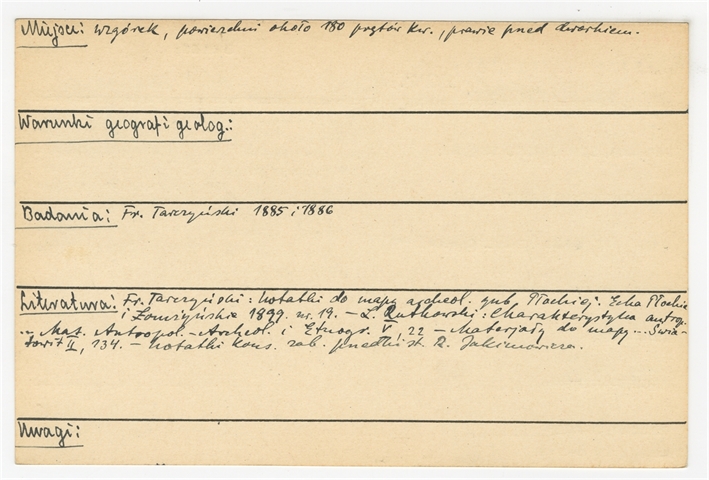 Miejsc: wzgórek, powierzchni około 180 prętów kw., prawie przed dworkiem.
Warunki geograf i geolog.:
Badania: Fr. Tarczyński 1885 i 1886
Literatura: Fr. Tarczyński: Notatki do mapy archeol. gub. Płockiej. Echa Płockie
i Łomżyńskie 1899. nr. 19. – L. Rutkowski: Charakterystyka antrop.
... Mat. Antropol.-Archeol. i Etnogr. V, 22 – Materjały do mapy... Świa-
towit II, 134. – Notatki kons. zab. przedhist. R. Jakimowicza.
Uwagi: